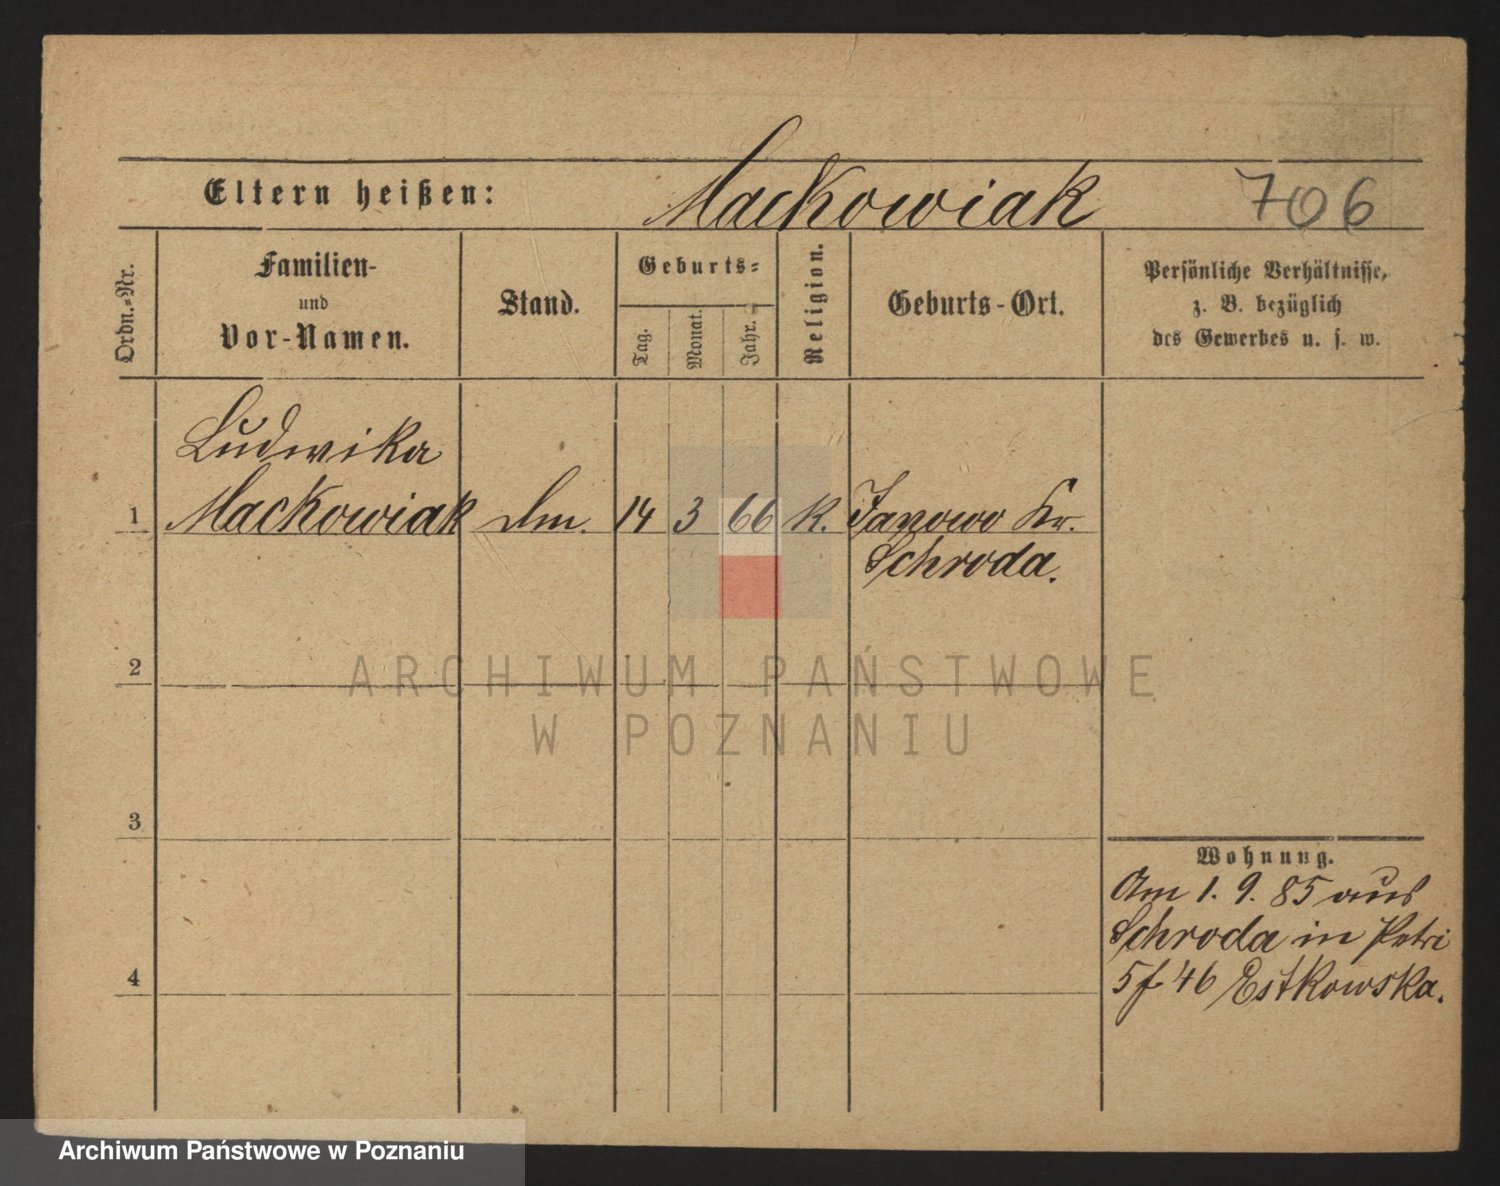 Eltern heißen: Mackowiak 706
Ordn.-Nr.
Familien-
und
Vor-Namen.
Stand.
Geburts-
Tag.
Monat.
Jahr.
Religion.
Geburts-Ort.
Persönliche Verhältnisse,
z. B. bezüglich
des Gewerbes u. s. w.
Ludwika
1 Mackowiak dm. 14 3 66 K. Janowo Kr.
Schroda.
2
3
4
Wohnung.
Am 1. 9. 85 aus
Schroda in Petri
5 f. 46 Estkowska.
ARCHIWUM PAŃSTWOWE
W POZNANIU
Archiwum Państwowe w Poznaniu